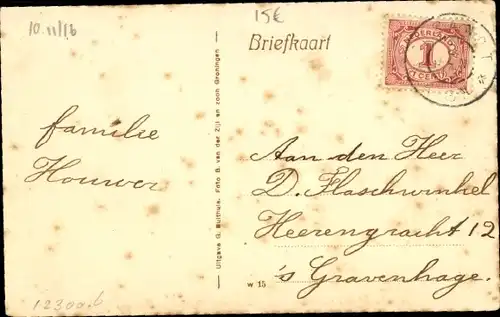 10.11/16
15€
Briefkaart
NEDERLAND
1
CENT
familie
Houwer
Uitgave G. Bulthuis. Foto B. van der Zijl en zoon Groningen
Aan den Heer
D. Flaschwinkel
Heerengracht 12
's Gravenhage.
w 15
12300.6